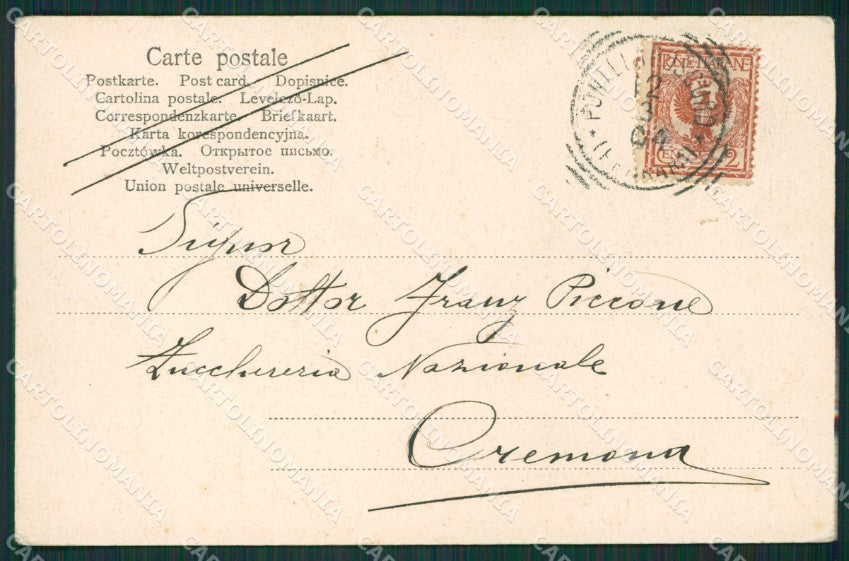 Carte postale
Postkarte. Post card. Dopisnice.
Cartolina postale. Levelező-Lap.
Correspondenzkarte. Briefkaart.
Karta korespondencyjna.
Pocztówka. Открытое письмо.
Weltpostverein.
Union postale universelle.
POSTE ITALIANE
2
12
3
04
(FERRARA)
Signor
Dottor Franz Piccone
Zucchereria Nazionale
Cremona
CARTOLINOMANIA